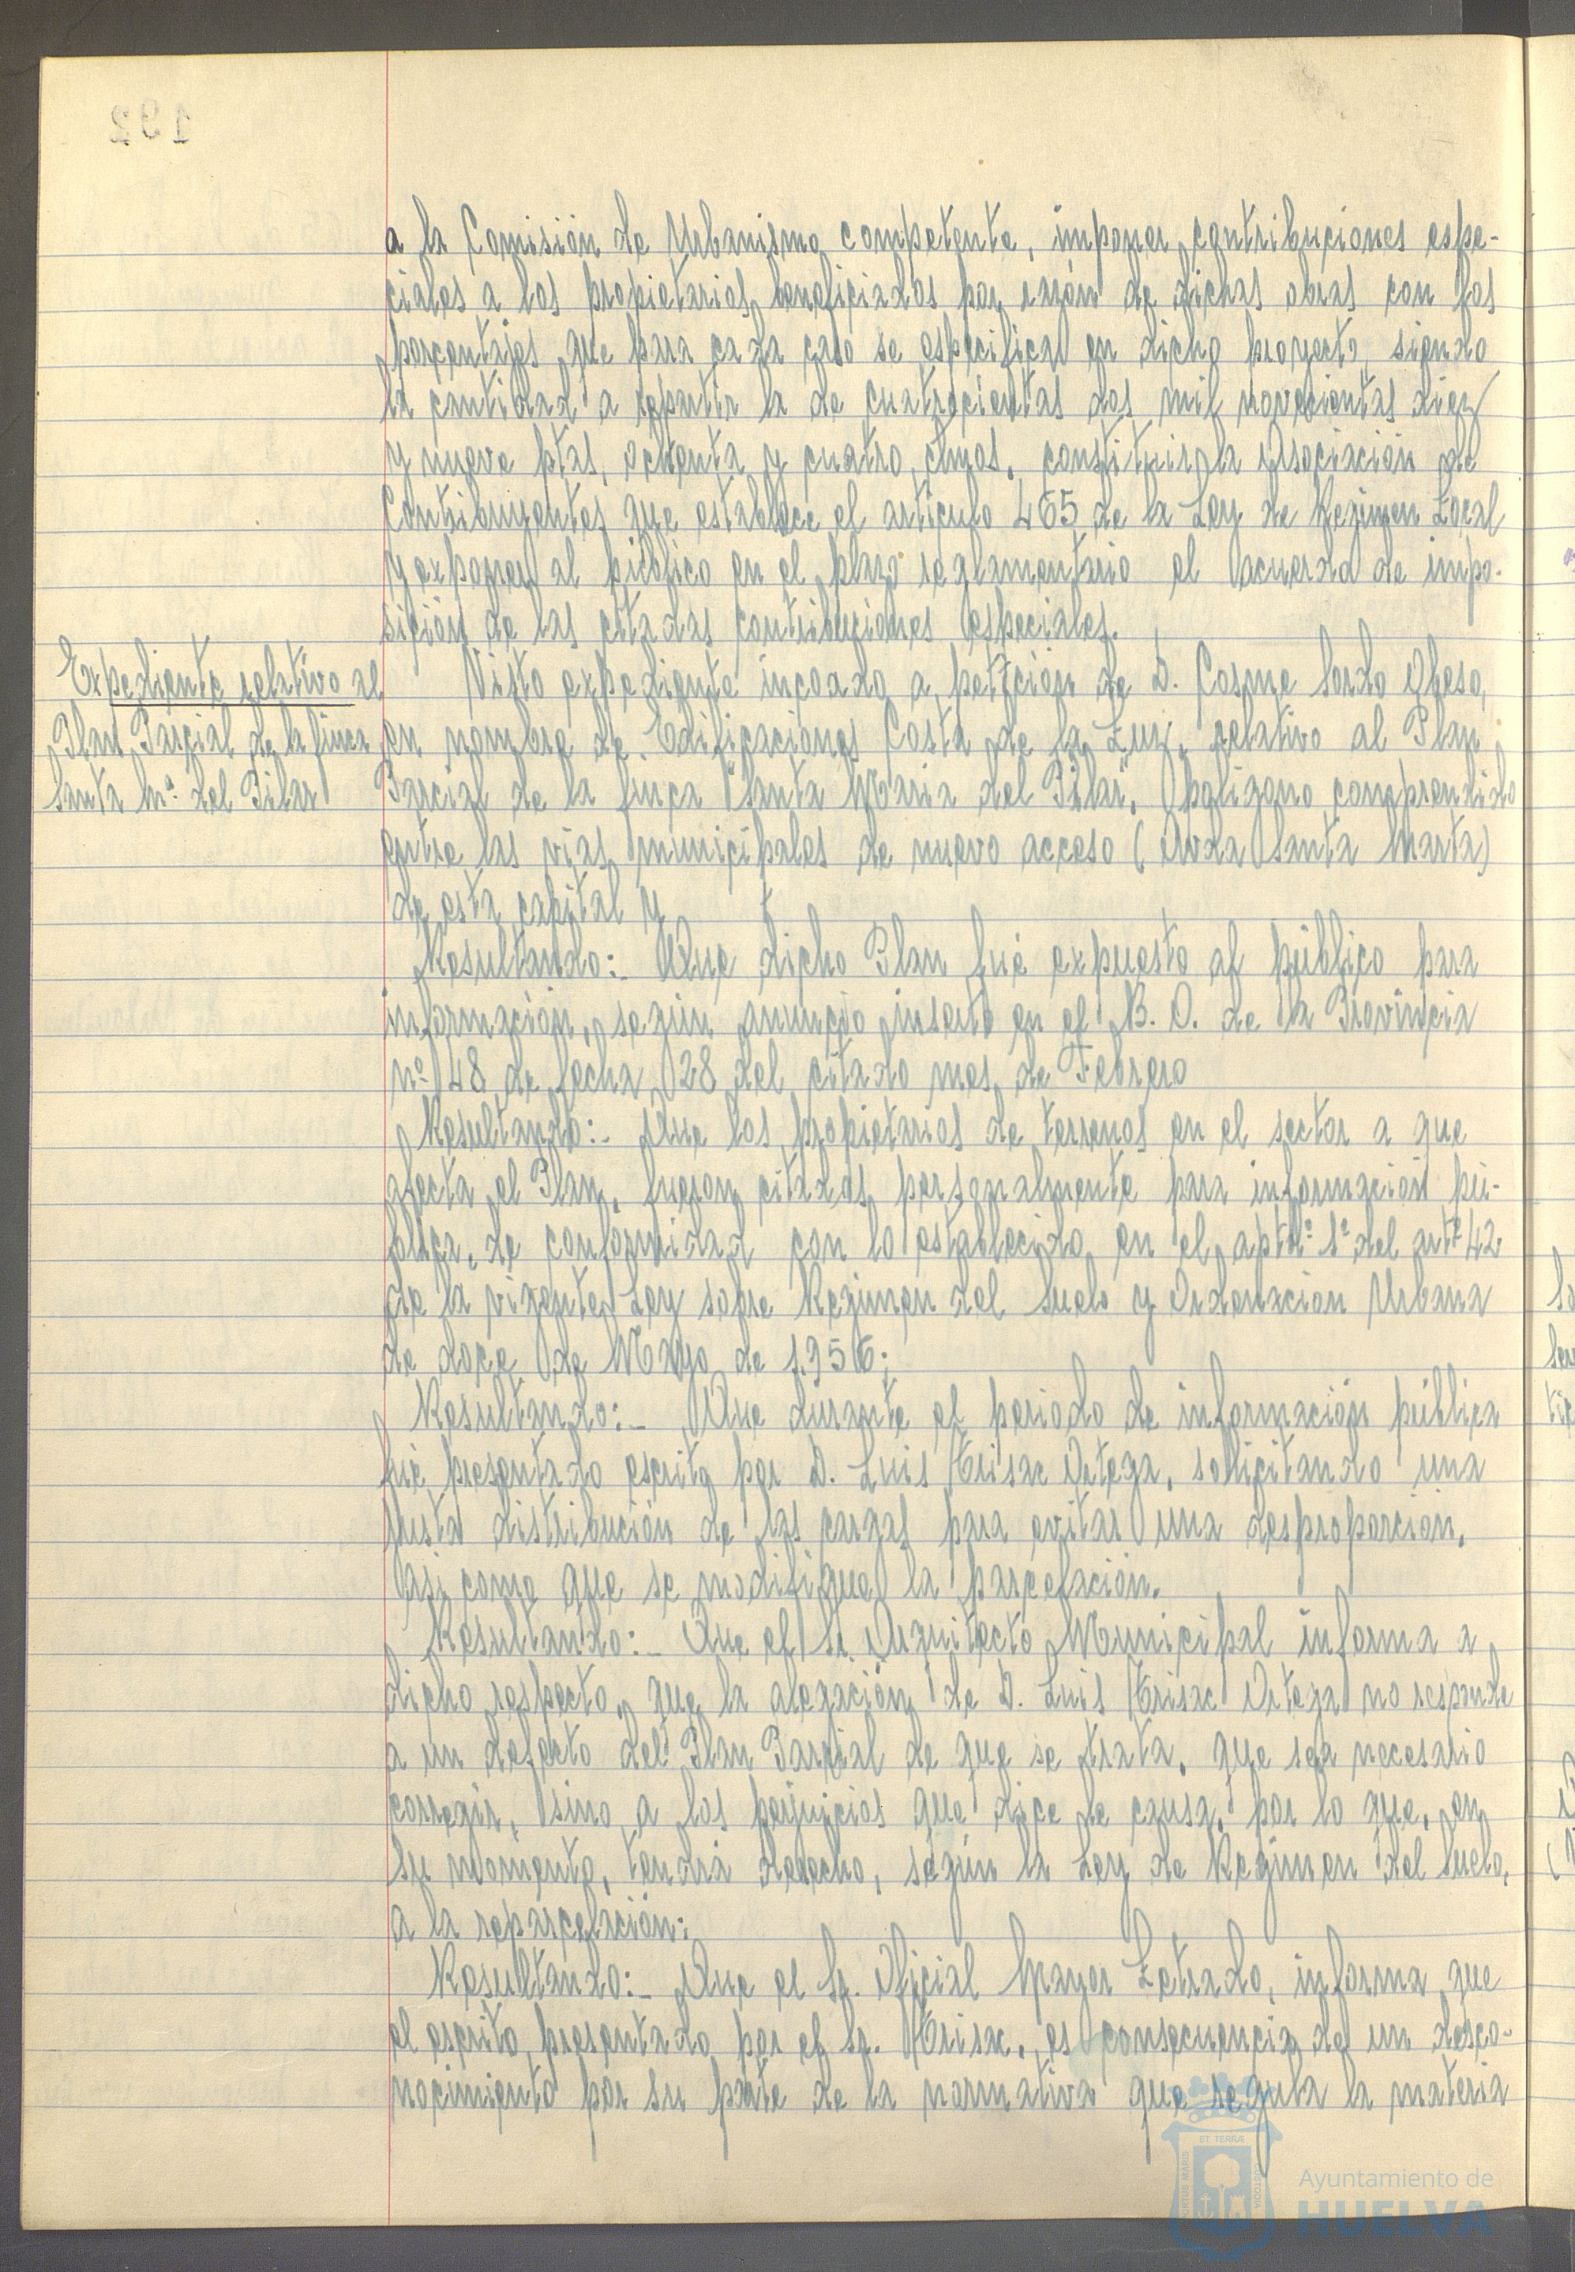 192
a la Comisión de Urbanismo competente, imponer contribuciones espe-
ciales a los propietarios beneficiados por razón de dichas obras con los
porcentajes que para cada caso se especifica en dicho proyecto, siendo
la cantidad a repartir la de cuatrocientas dos mil novecientas diez
y nueve ptas, ochenta y cuatro ctmos, constituir la Asociación de
Contribuyentes que establece el artículo 465 de la Ley de Regimen Local
y exponer al público en el plazo reglamentario el acuerdo de impo-
sición de las citadas contribuciones especiales.
Expediente relativo al
Plan Parcial de la finca
Santa Mª del Pilar
Visto expediente incoado a petición de D. Cosme Sordo Obeso,
en nombre de Edificaciones Costa de la Luz, relativo al Plan
Parcial de la finca "Santa Maria del Pilar", poligono comprendido
entre las vias municipales de nuevo acceso (Avda Santa Marta)
de esta capital y
Resultando:- Que dicho Plan fué expuesto al público para
información, según anuncio inserto en el B. O. de la Provincia
nº 48 de fecha 28 del citado mes de Febrero
Resultando:- Que los propietarios de terrenos en el sector a que
afecta el Plan, fueron citados personalmente para información pú-
blica, de conformidad con lo establecido en el aptdº 1º del artº 42
de la vigente Ley sobre Regimen del Suelo y Ordenación Urbana
de doce de Mayo de 1.956;
Resultando:- Que durante el periodo de información pública
fué presentado escrito por D. Luis Ortega, solicitando una
justa distribución de las cargas para evitar una desproporción,
asi como que se modifique la parcelación.
Resultando:- Que el Sr. Arquitecto Municipal informa a
dicho respecto, que la alegación de D. Luis Ortega no responde
a un defecto del Plan Parcial de que se trata, que sea necesario
corregir, sino a los perjuicios que dice le causa, por lo que, en
su momento, tendrá derecho, según la Ley de Regimen del Suelo,
a la reparcelación;
Resultando:- Que el Sr. Oficial Mayor Letrado, informa que
el escrito presentado por el Sr. es consecuencia de un desco-
nocimiento por su parte de la normativa que regula la materia
PORTUS MARIS ET TERRAE CUSTODIA
Ayuntamiento de
HUELVA